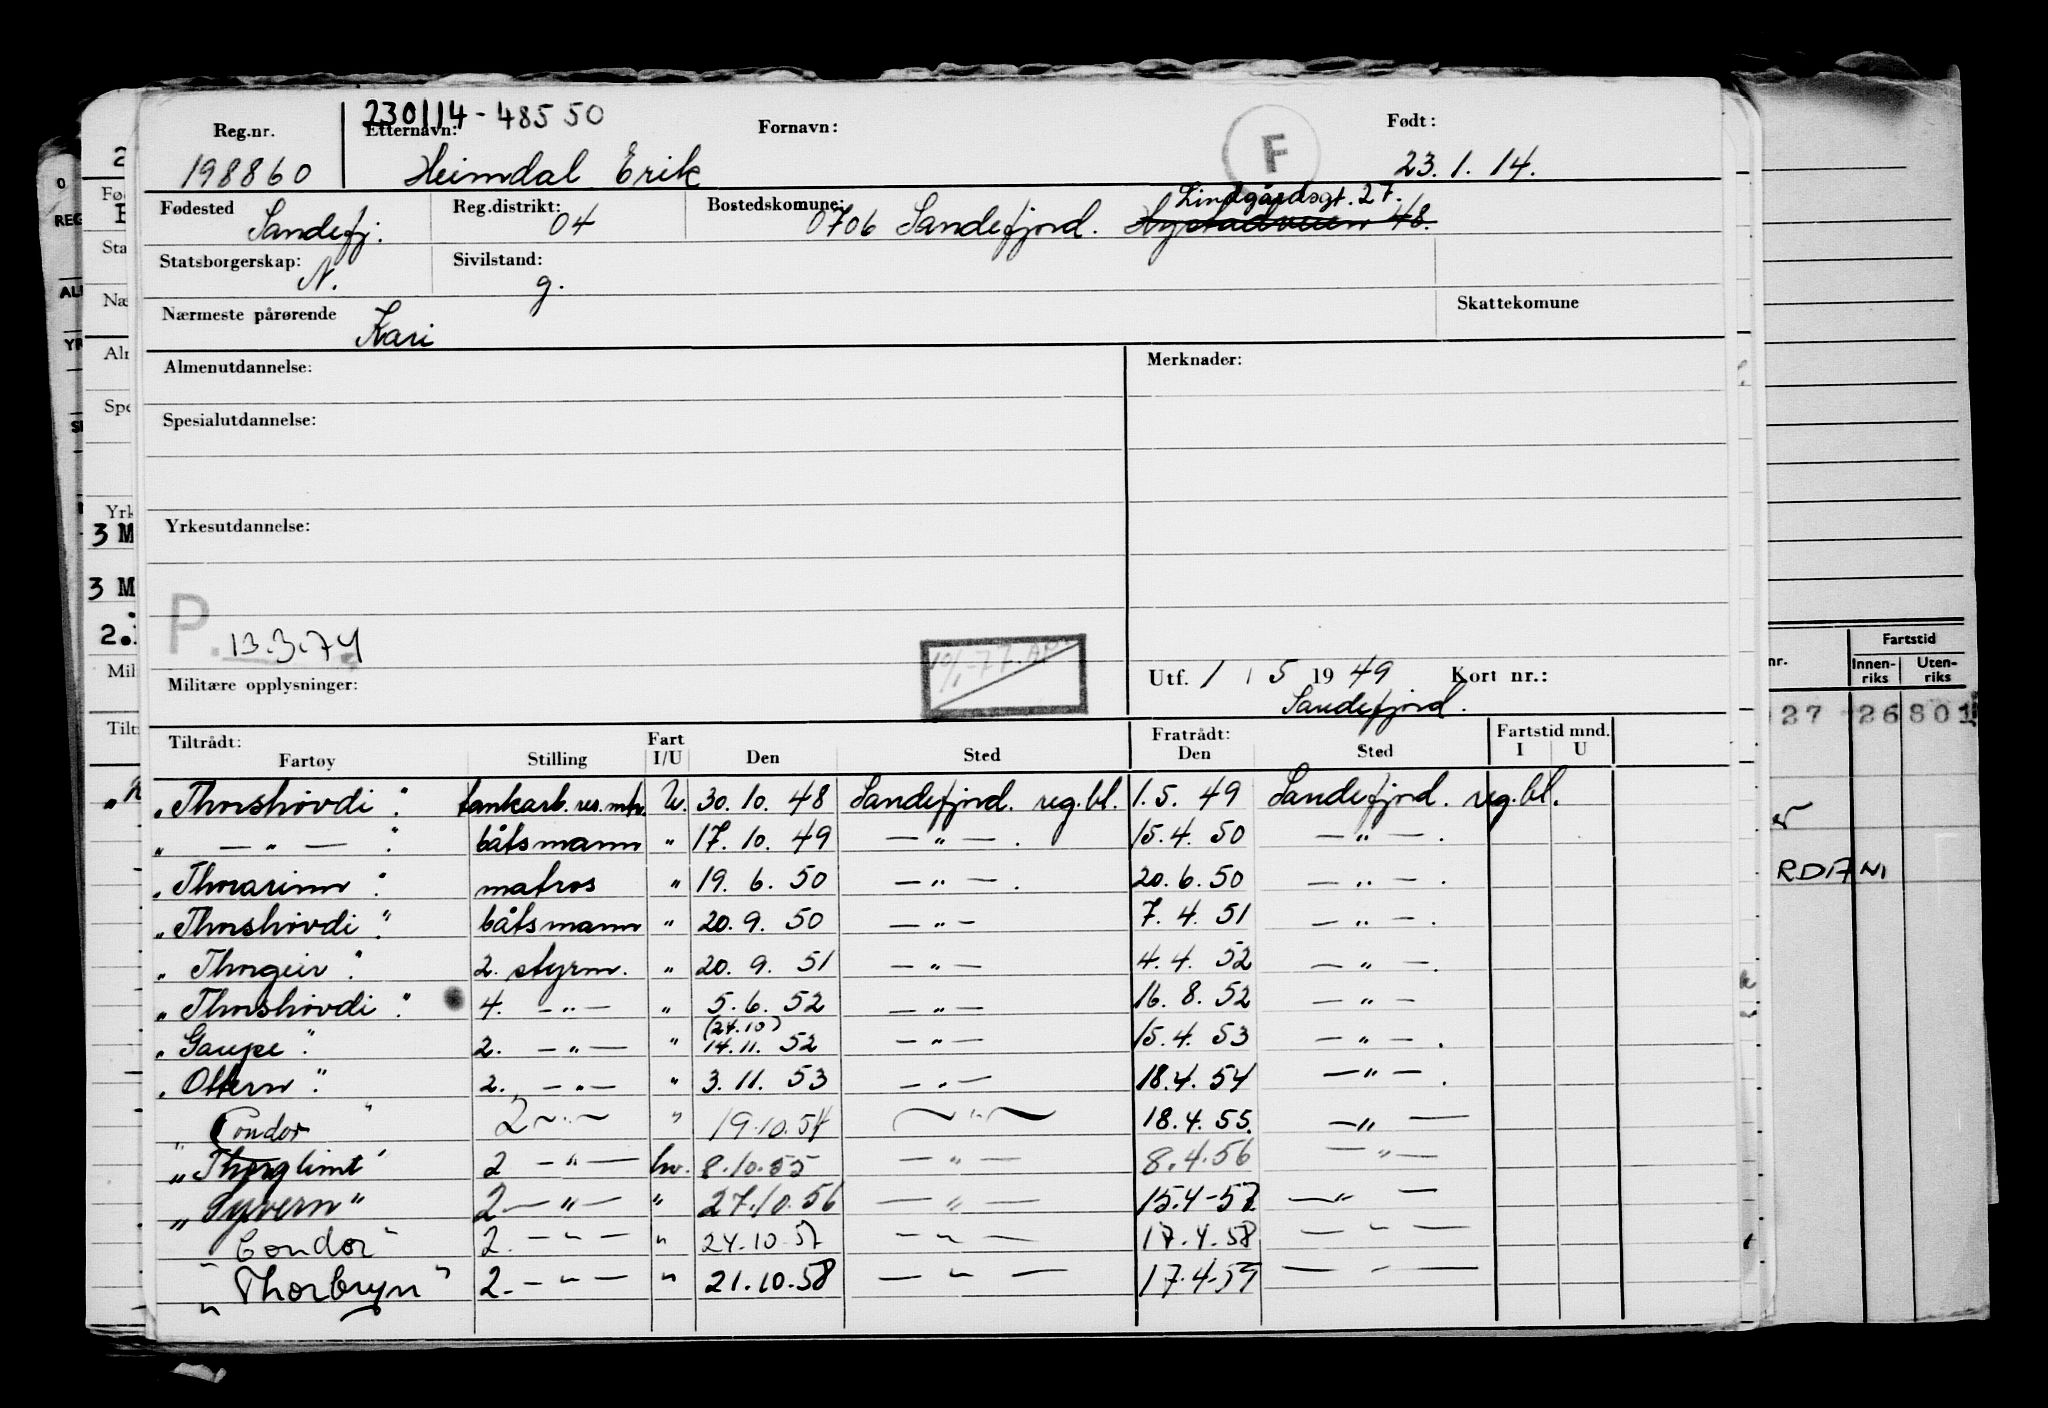 230114-48550
Reg.nr. Etternavn: Fornavn: F Født:
198860 Heimdal Erik 23.1.14.
Lindgårdsgt. 27.
Fødested Sandefj. Reg.distrikt: 04 Bostedskomune: 0706 Sandefjord. 48.
Statsborgerskap: N. Sivilstand: g.
Nærmeste pårørende Kari Skattekomune
Almenutdannelse: Merknader:
Spesialutdannelse:
Yrkesutdannelse:
P. 13.3.74
Militære opplysninger: Utf. 1 / 5 1949 Kort nr.:
Sandefjord.
Tiltrådt: Fart Fratrådt: Fartstid mnd.
Fartøy Stilling I/U Den Sted Den Sted I U
"Thorshøvdi". tankarb. res. mtr. U. 30.10.48 Sandefjord. reg.bl. 1.5.49 Sandefjord. reg.bl.
" — " — ". båtsmann " 17.10.49 — " — . 15.4.50 — " — .
"Thorarinn". matros " 19.6.50 — " — . 20.6.50 — " — .
"Thorshøvdi". båtsmann " 20.9.50 — " — 7.4.51 — " — .
"Thorgeir". 2. styrm. " 20.9.51 — " — 4.4.52 — " — .
"Thorshøvdi". 4. — " — " 5.6.52 — " — 16.8.52 — " —
(24.10)
"Gaupe". 2. — " — " 14.11.52 — " — 15.4.53 — " — .
"Ottern". 2. — " — " 3.11.53 — " — 18.4.54 — " — .
"Condor" 2 — " — " 19.10.54 — " — 18.4.55. — " —
"Thorglimt" 2 — " — hv. 8.10.55 — " — 8.4.56 — " —
"Jyvern" 2. — " — " 27.10.56 — " — 15.4-57. — " —
"Condor" 2. — " — " 24.10.57 — " — 17.4.58 — " —
"Thorbryn" 2. — " — " 21.10.58 — " — 17.4.59 — " —
3 M
3 M
Fartstid
Innen-riks Uten-riks
27 26 801